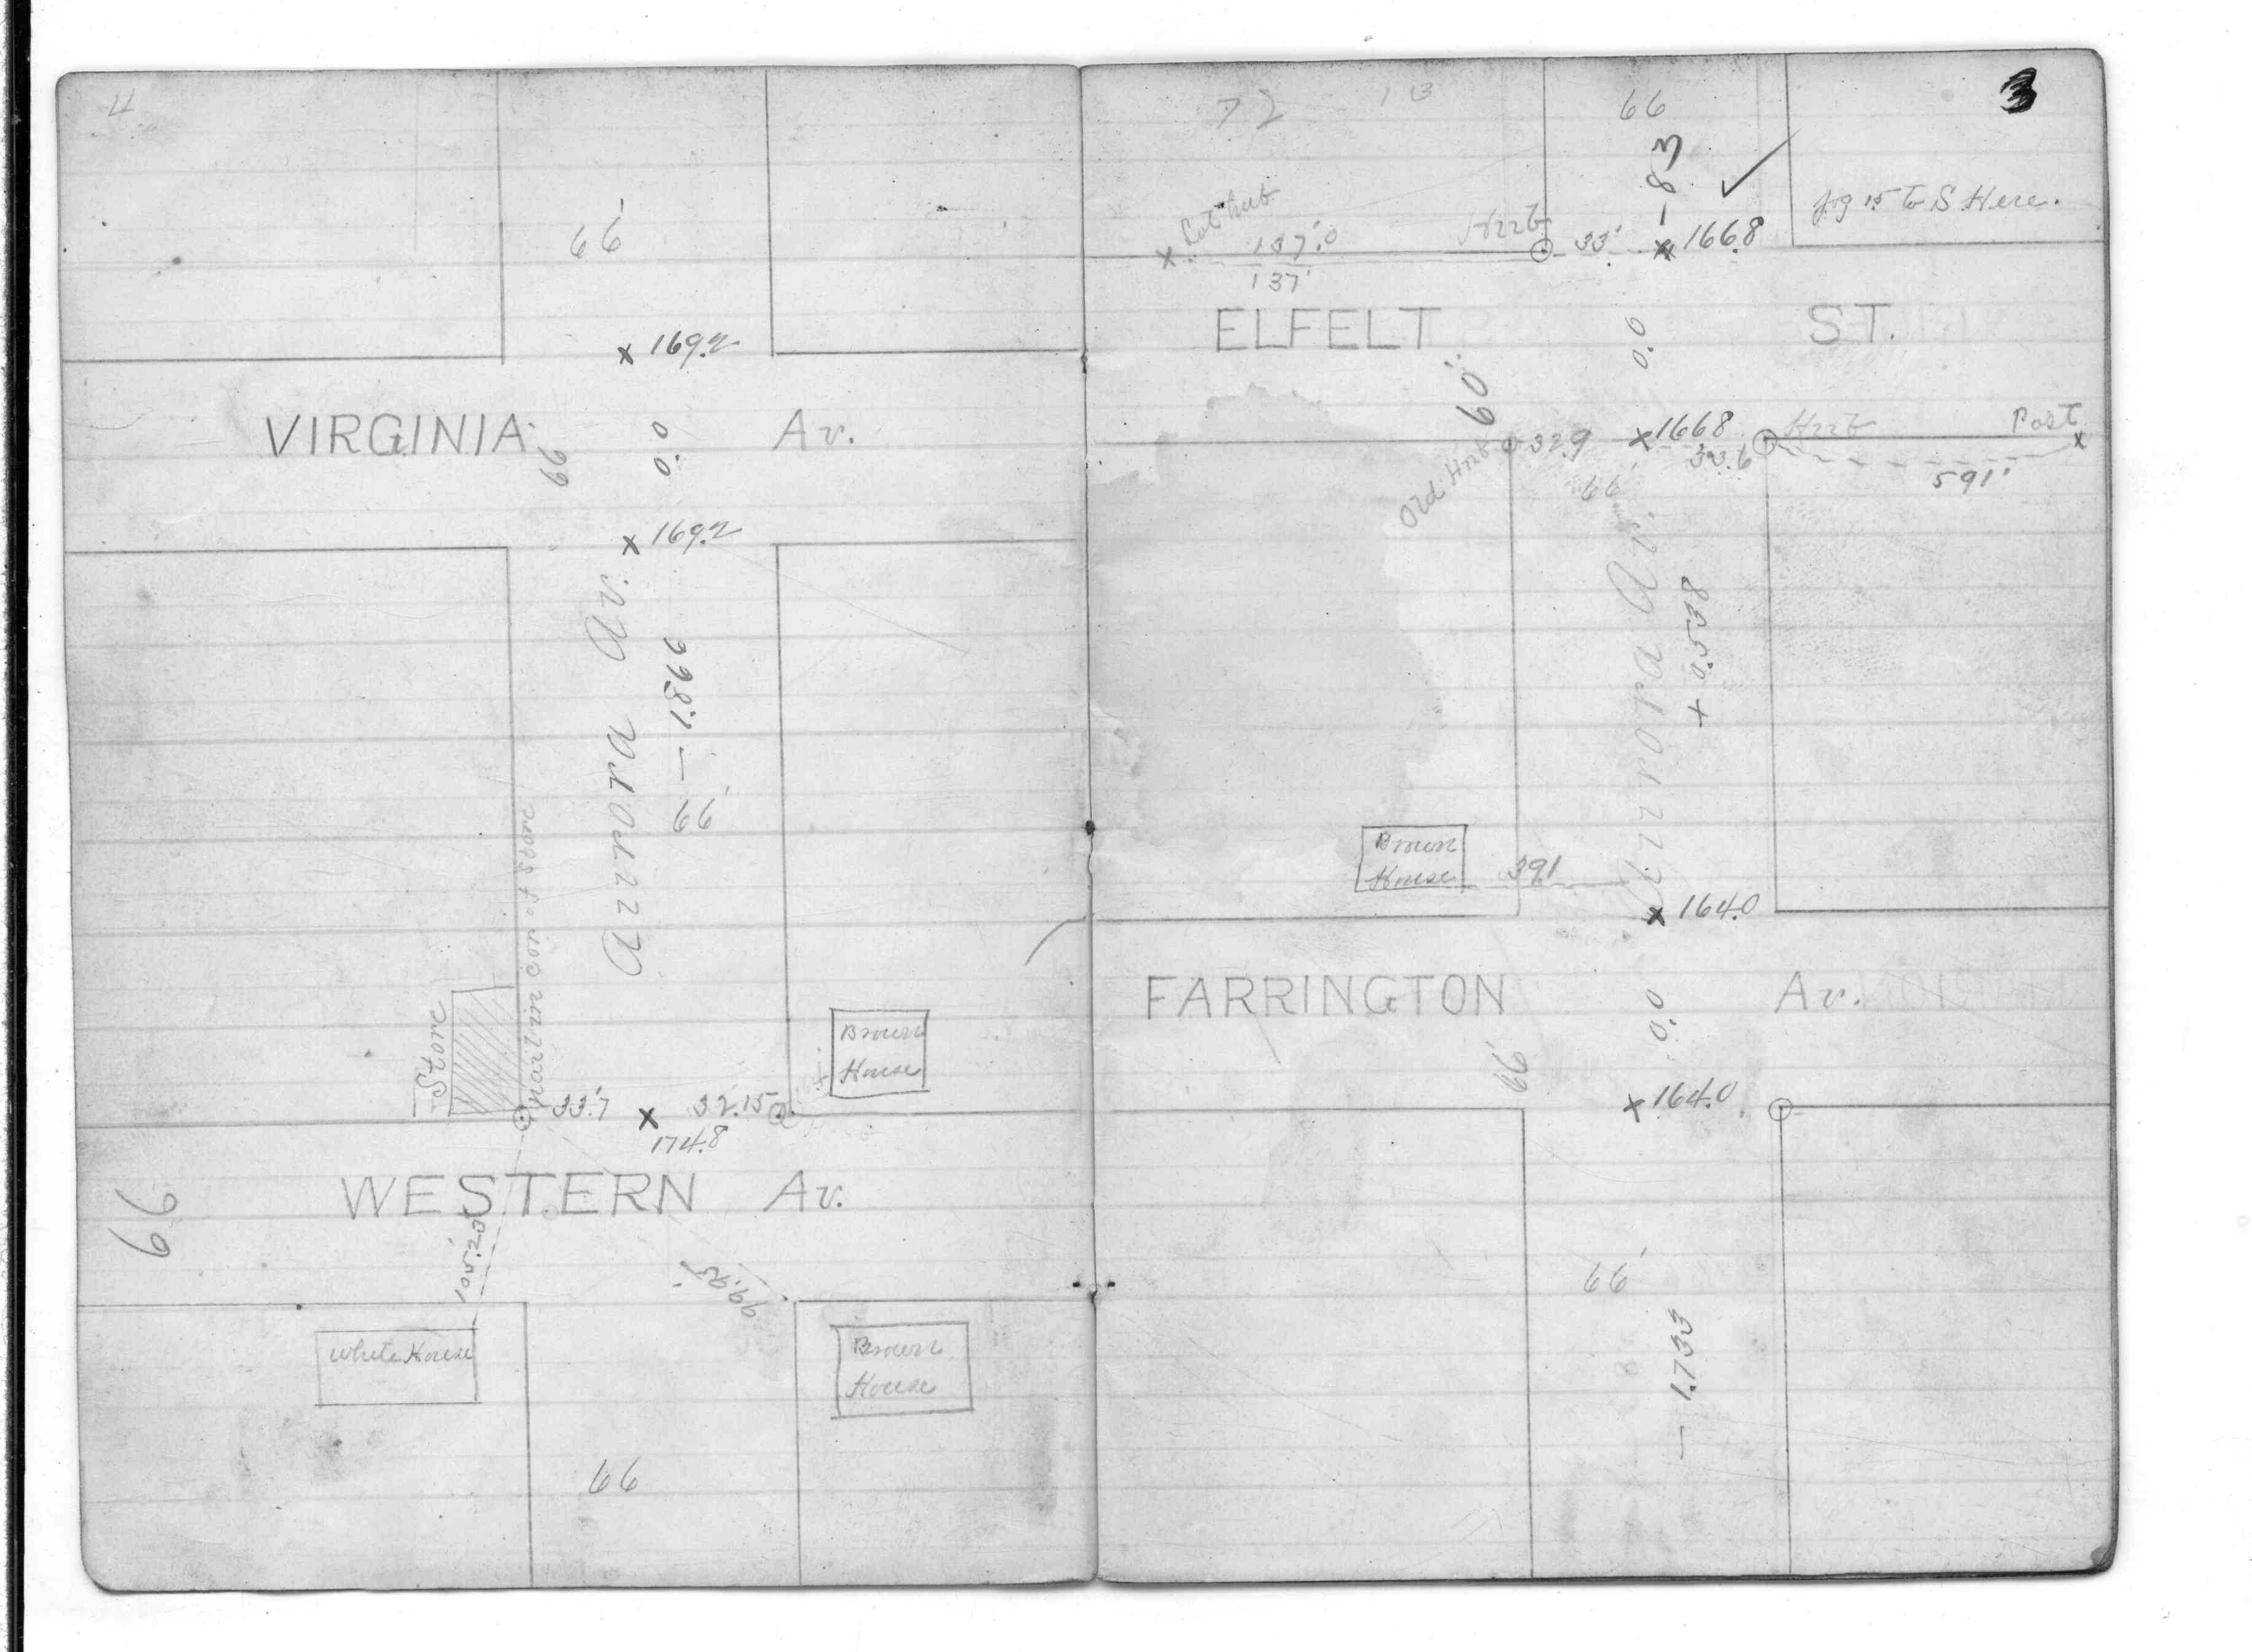 4
66'
× 169.2
VIRGINIA Av.
66
0.0
× 169.2
Aurora Av.
— 1.866
66'
nail in cor. of Store
Store
Brown
House
33.7
×
32.15
174.8
WESTERN Av.
66
105.23
99.95'
White House
Brown
House
66
3
72
13
66
— 8
Lot hub
137.0
137'
Hub
33'
× 166.8
Jog 15 to S Here.
ELFELT ST.
0.0
60'
Old Hub
32.9
× 166.8
33.6
Hub
Post
591'
66'
Aurora Av.
+ 0.538
Brown
House
39.1
× 164.0
FARRINGTON Av.
66'
0.0
× 164.0
66'
— 1.733